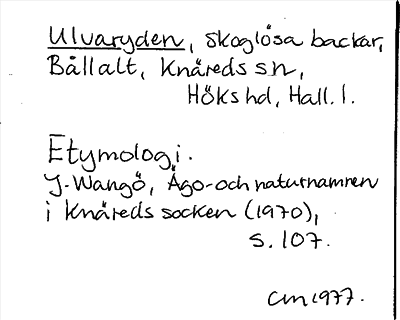 Ulvaryden, skoglösa backar,
Bållalt, Knäreds sn,
Höks hd, Hall. l.
Etymologi.
J. Wangö, Ägo- och naturnamnen
i Knäreds socken (1970),
s. 107.
CM 1977.